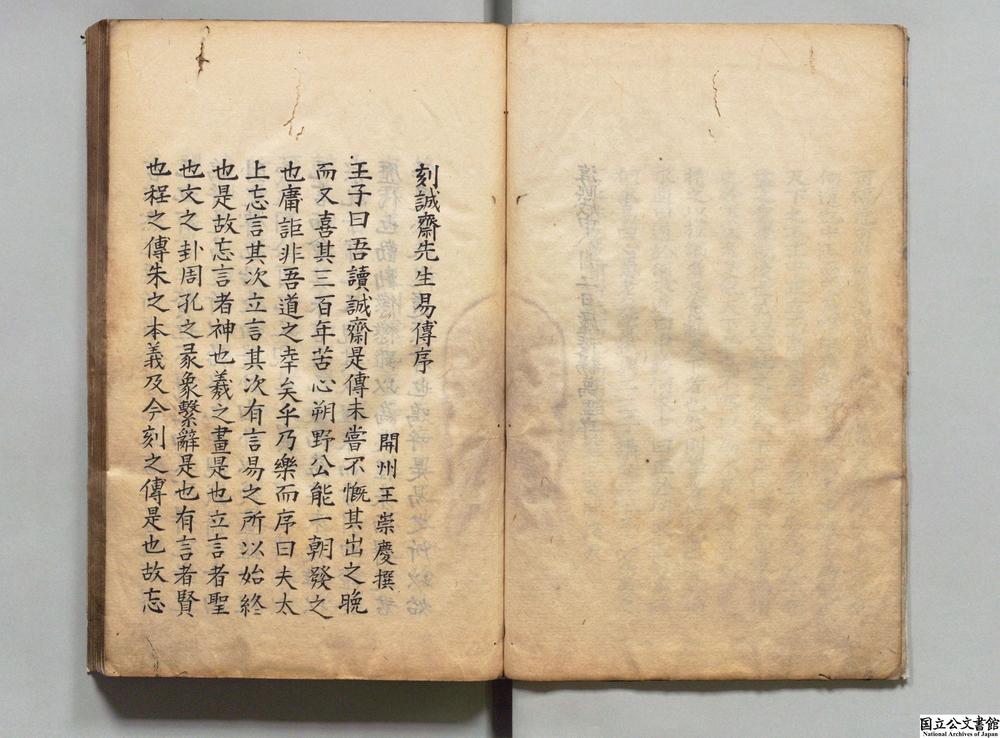 刻誠齋先生易傳序
開州王崇慶撰
王子曰吾讀誠齋是傳未嘗不慨其出之晚
而又喜其三百年苦心朔野公能一朝發之
也庸詎非吾道之幸矣乎乃樂而序曰夫太
上忘言其次立言其次有言易之所以始終
也是故忘言者神也羲之畫是也立言者聖
也文之卦周孔之彖象繫辭是也有言者賢
也程之傳朱之本義及今刻之傳是也故忘
国立公文書館
National Archives of Japan